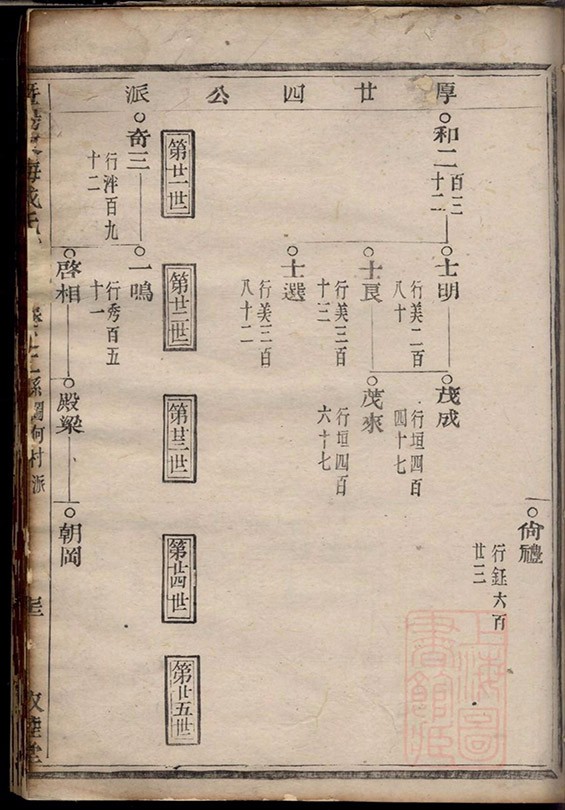 厚廿四公派
尙禮
行鈺六百
廿三
和二
百三
十二
士明
行美二百
八十
茂成
行垣四百
四十七
士良
行美三百
十三
茂來
行垣四百
六十七
士選
行美三百
八十二
第廿一世
第廿二世
第廿三世
第廿四世
第廿五世
奇三
行泮百九
十二
一鳴
行秀百五
十一
啓相
殿梁
朝岡
河村派
上海圖
書館藏